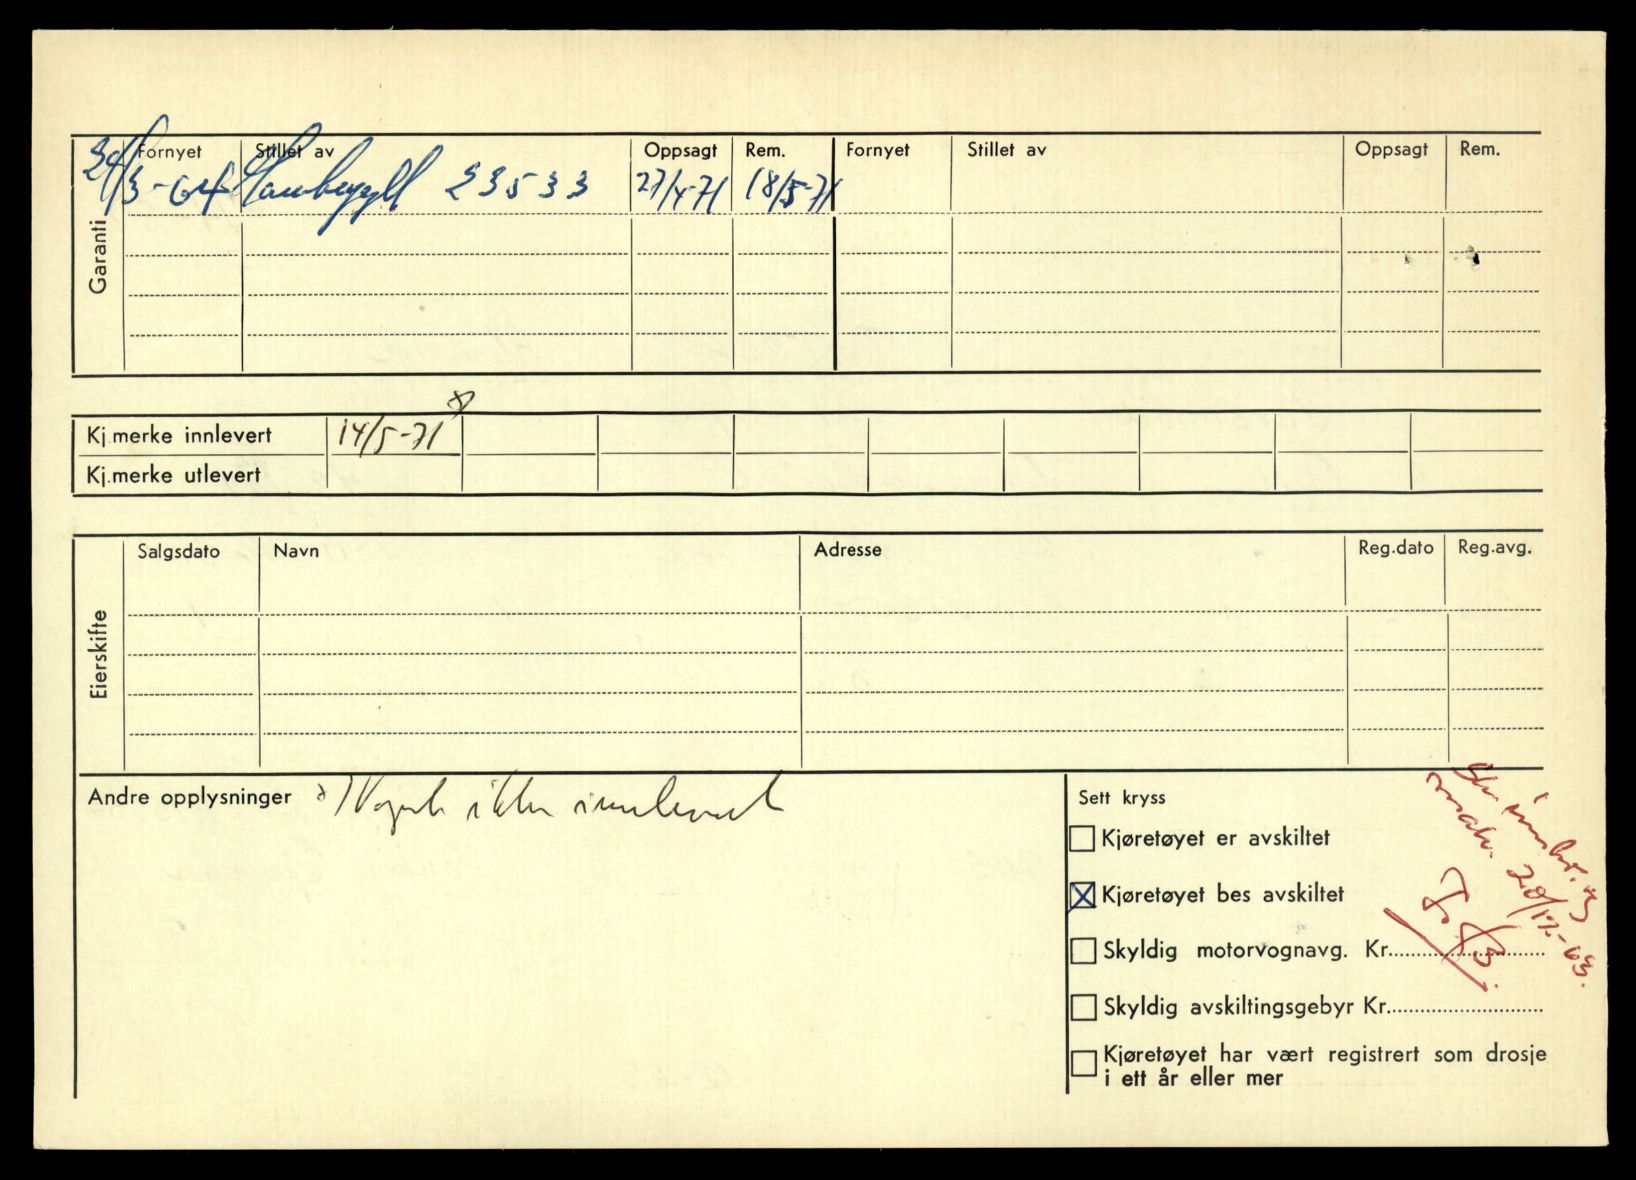 Garanti
Fornyet Stillet av Oppsagt Rem. Fornyet Stillet av Oppsagt Rem.
24/3-64 23533 27/4-71 18/5-71
x)
Kj.merke innlevert 14/5-71
Kj.merke utlevert
Eierskifte
Salgsdato Navn Adresse Reg.dato Reg.avg.
Andre opplysninger x) Vognk ikke innlevert
Sett kryss
Kjøretøyet er avskiltet
Kjøretøyet bes avskiltet
Skyldig motorvognavg. Kr.
Skyldig avskiltingsgebyr Kr.
Kjøretøyet har vært registrert som drosje
i ett år eller mer
20/12-63.